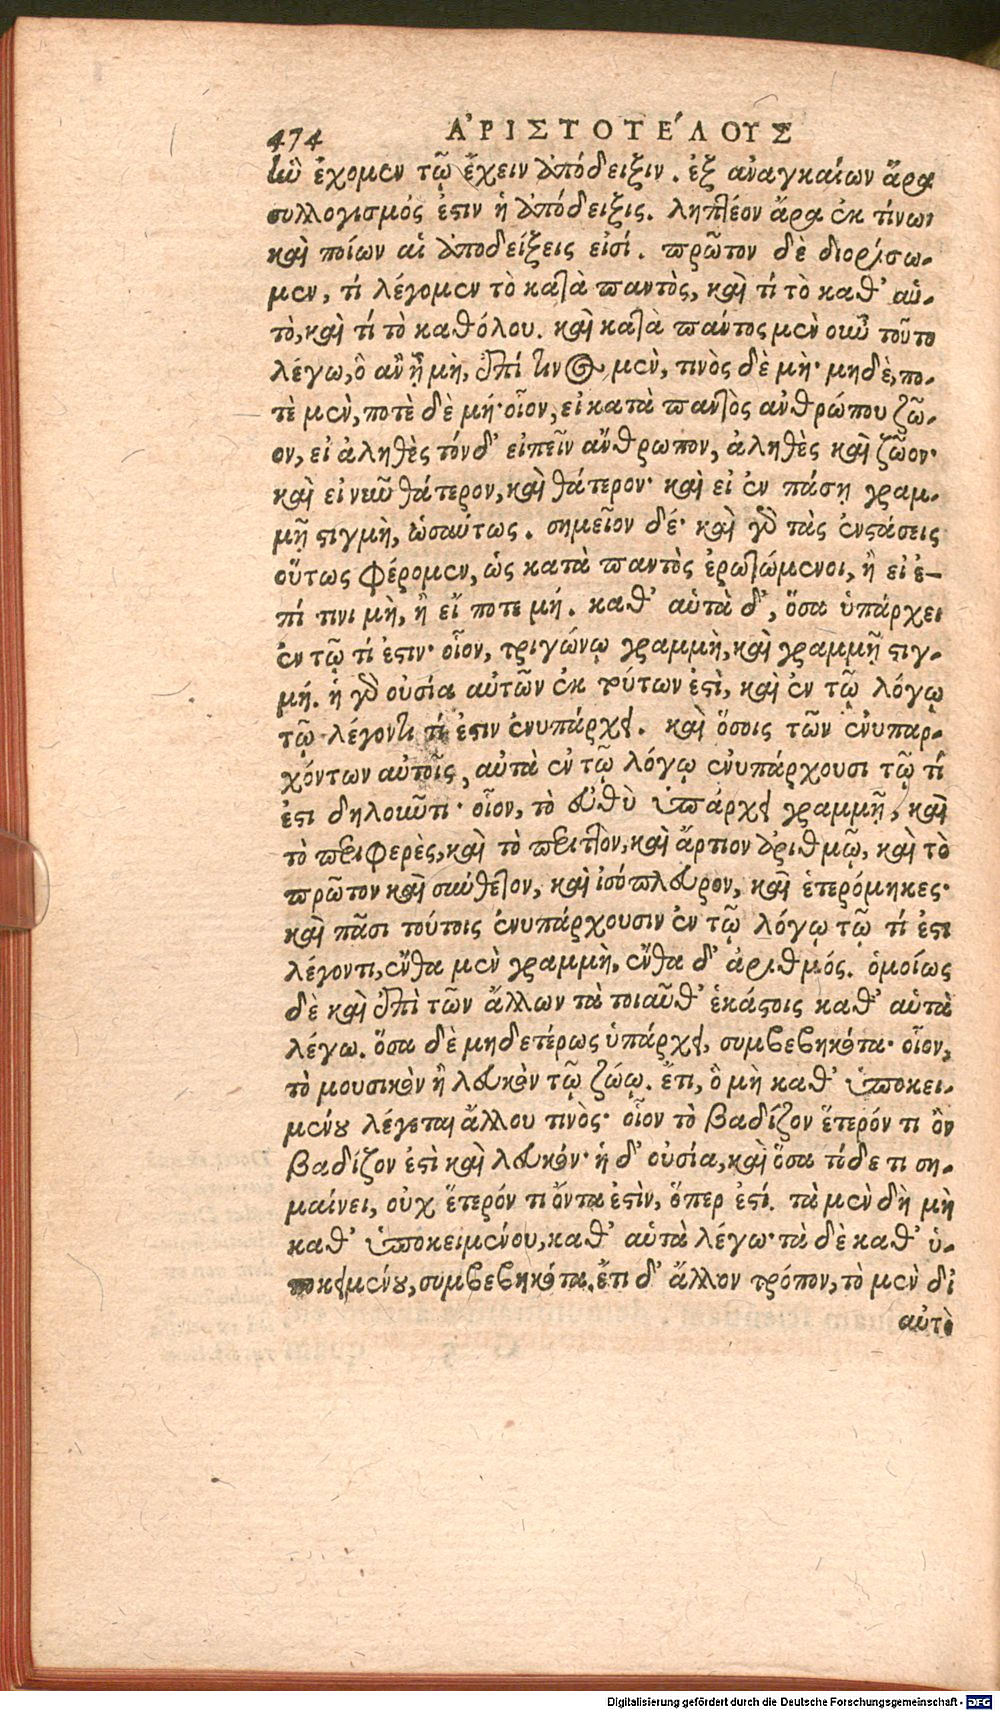 474 ἈΡΙΣΤΟΤΈΛΟΥΣ
ἣν ἔχομεν τῷ ἔχειν ἀπόδειξιν. ἐξ ἀναγκαίων ἄρα
συλλογισμός ἐστιν ἡ ἀπόδειξις. ληπτέον ἄρα ἐκ τίνων
καὶ ποίων αἱ ἀποδείξεις εἰσί. πρῶτον δὲ διορίσω-
μεν, τί λέγομεν τὸ κατὰ παντὸς, καὶ τί τὸ καθ' αὑ-
τὸ, καὶ τί τὸ καθόλου. καὶ κατὰ πάντος μὲν οὖν τοῦτο
λέγω, ὃ ἂν ᾖ μὴ, ἐπί τινος μὲν, τινὸς δὲ μὴ· μηδὲ, πο-
τὲ μὲν, ποτὲ δὲ μή· οἷον, εἰ κατὰ παντὸς ἀνθρώπου ζῶ-
ον, εἰ ἀληθὲς τόνδ' εἰπεῖν ἄνθρωπον, ἀληθὲς καὶ ζῶον·
καὶ εἰ νῦν θάτερον, καὶ θάτερον· καὶ εἰ ἐν πάσῃ γραμ-
μῇ στιγμὴ, ὡσαύτως. σημεῖον δέ· καὶ γὰρ τὰς ἐνστάσεις
οὕτως φέρομεν, ὡς κατὰ παντὸς ἐρωτώμενοι, ἢ εἰ ἐ-
πί τινι μὴ, ἢ εἴ ποτε μή. καθ' αὑτὰ δ', ὅσα ὑπάρχει
ἐν τῷ τί ἐστιν· οἷον, τριγώνῳ γραμμὴ, καὶ γραμμῇ στιγ-
μή. ἡ γὰρ οὐσία αὐτῶν ἐκ τούτων ἐστὶ, καὶ ἐν τῷ λόγῳ
τῷ λέγοντι τί ἐστιν ἐνυπάρχει. καὶ ὅσοις τῶν ἐνυπαρ-
χόντων αὐτοῖς, αὐτὰ ἐν τῷ λόγῳ ἐνυπάρχουσι τῷ τί
ἐστι δηλοῦντι· οἷον, τὸ εὐθὺ ὑπάρχει γραμμῇ, καὶ
τὸ περιφερὲς, καὶ τὸ περιττὸν, καὶ ἄρτιον ἀριθμῷ, καὶ τὸ
πρῶτον καὶ σύνθετον, καὶ ἰσόπλευρον, καὶ ἑτερόμηκες·
καὶ πᾶσι τούτοις ἐνυπάρχουσιν ἐν τῷ λόγῳ τῷ τί ἐστι
λέγοντι, ἔνθα μὲν γραμμὴ, ἔνθα δ' ἀριθμός. ὁμοίως
δὲ καὶ ἐπὶ τῶν ἄλλων τὰ τοιαῦθ' ἑκάστοις καθ' αὑτὰ
λέγω. ὅσα δὲ μηδετέρως ὑπάρχει, συμβεβηκότα· οἷον,
τὸ μουσικὸν ἢ λευκὸν τῷ ζώῳ. ἔτι, ὃ μὴ καθ' ὑποκει-
μένου λέγεται ἄλλου τινὸς· οἷον τὸ βαδίζον ἕτερόν τι ὂν
βαδίζον ἐστὶ καὶ λευκόν· ἡ δ' οὐσία, καὶ ὅσα τόδε τι ση-
μαίνει, οὐχ ἕτερόν τι ὄντα ἐστὶν, ὅπερ ἐστί. τὰ μὲν δὴ μὴ
καθ' ὑποκειμένου, καθ' αὑτὰ λέγω· τὰ δὲ καθ' ὑ-
ποκειμένου, συμβεβηκότα. ἔτι δ' ἄλλον τρόπον, τὸ μὲν δι
αὐτὸ
Digitalisierung gefördert durch die Deutsche Forschungsgemeinschaft - DFG